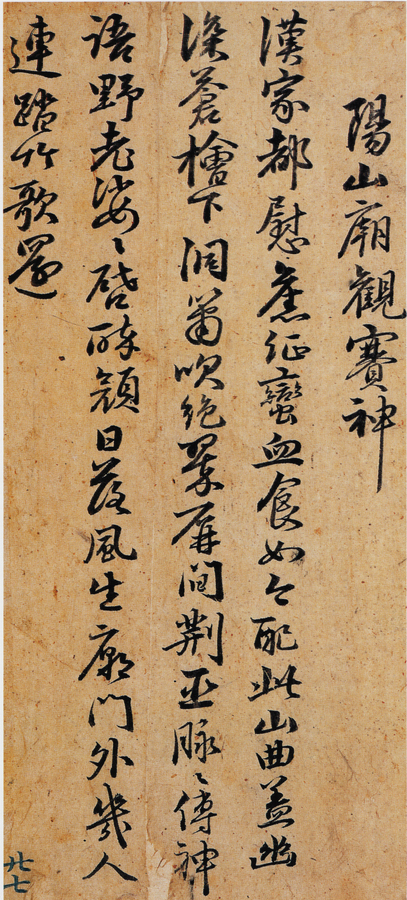 陽山廟觀賽神
漢家都慰舊征蠻血食如今配此山曲蓋幽
深蒼檜下洞簫吹絶翠屏間荆巫脉〻傳神
語野老娑〻啓醉顔日落風生廟門外幾人
連踏竹歌還
廿七